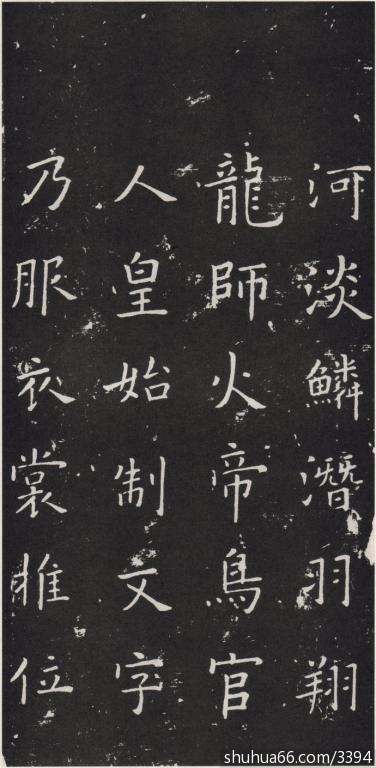 河淡鱗潛羽翔
龍師火帝鳥官
人皇始制文字
乃服衣裳推位
shuhua66.com/3394